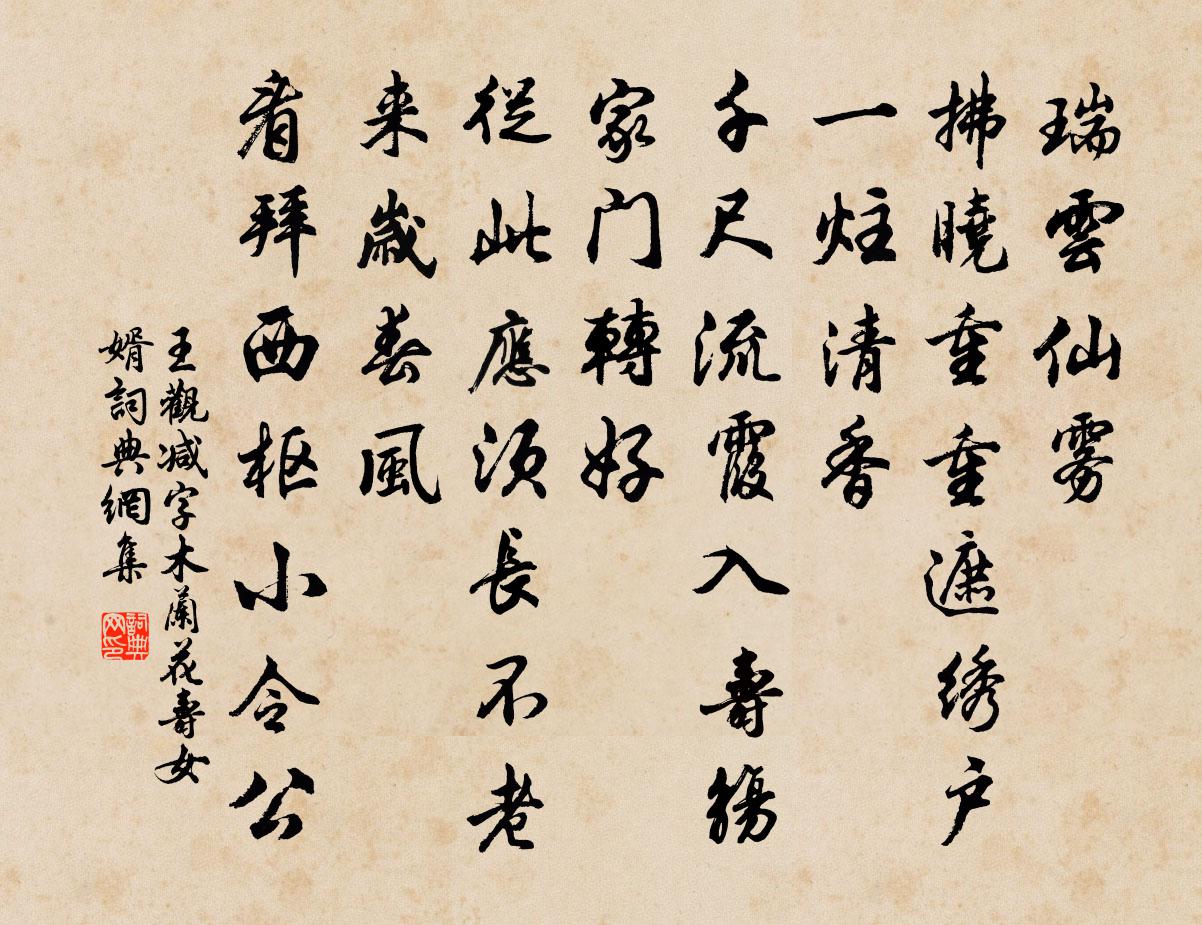 瑞雲仙雾
拂曉重重遮绣户
一炷清香
千尺流霞入壽觴
家门轉好
從此應須長不老
来歲春風
看拜西枢小令公
王觀减字木蘭花壽女
婿詞典網集
詞典
网印